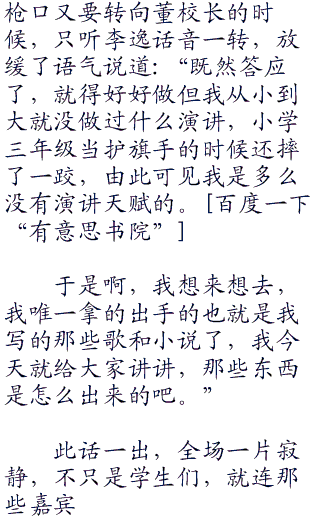 枪口又要转向董校长的时
候，只听李逸话音一转，放
缓了语气说道：“既然答应
了，就得好好做但我从小到
大就没做过什么演讲，小学
三年级当护旗手的时候还摔
了一跤，由此可见我是多么
没有演讲天赋的。[百度一下
“有意思书院”]
于是啊，我想来想去，
我唯一拿的出手的也就是我
写的那些歌和小说了，我今
天就给大家讲讲，那些东西
是怎么出来的吧。”
此话一出，全场一片寂
静，不只是学生们，就连那
些嘉宾